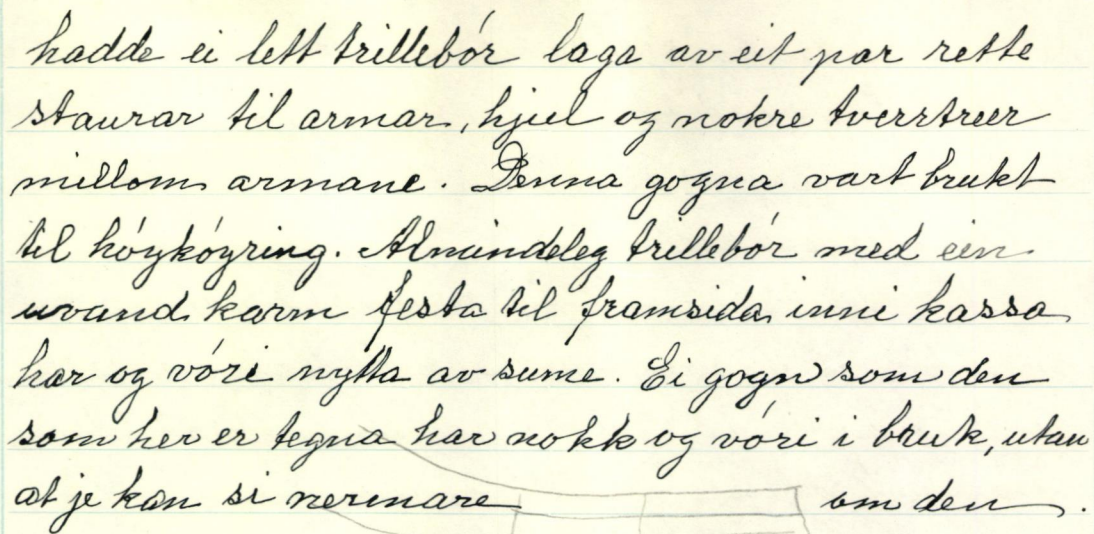 hadde ei lett trillebór laga av eit par rette
staurar til armar, hjul og nokre tverrtreer
millom armane. Denna gogna vart brukt
til hóykóyring. Almindeleg trillebór med ein
uvand karm festa til framsida inni kassa
har og vóri nytta av sume. Ei gogn som den
som her er tegna har nokk og vóri i bruk, utan
at je kan si nermare om den.